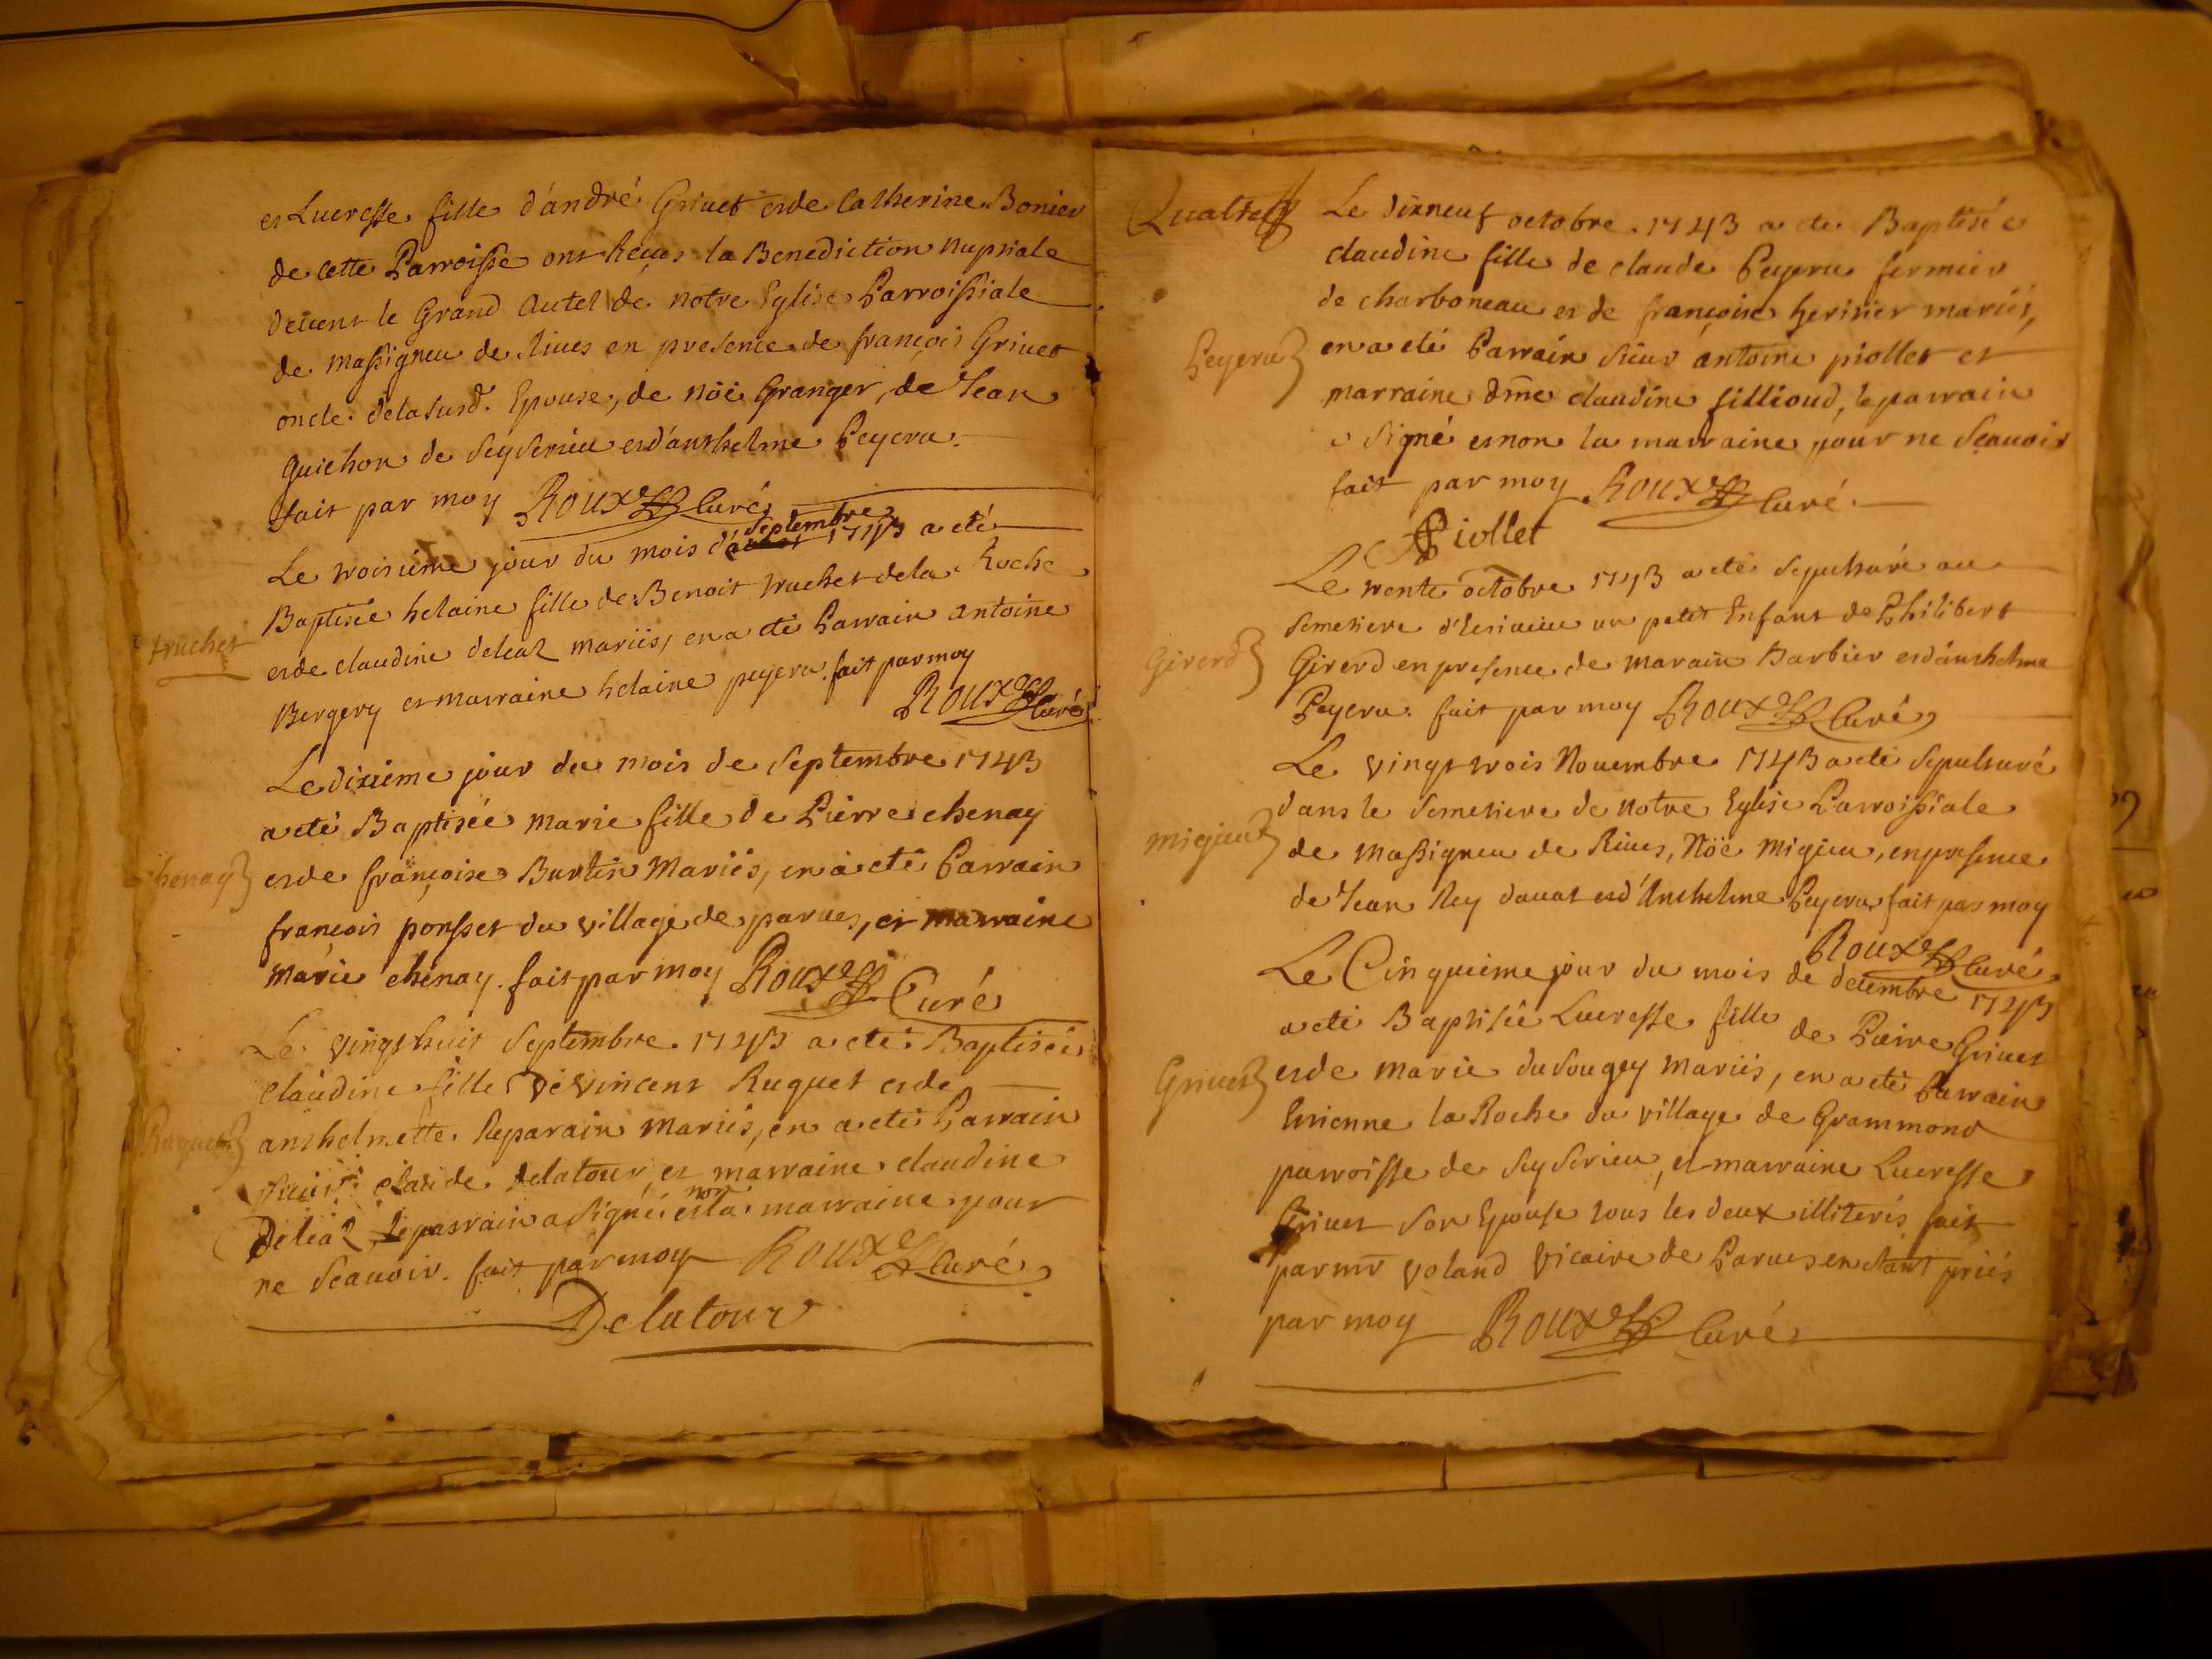 et Lucresse fille d'andré Grivet et de Catherine Bonier
de cette Parroisse ont Reçus la Benediction nuptiale
devent le Grand Autel de notre Eglise Parroissiale
de Massigneu de Rives en presence de françois Grivet
oncle de la susd. Epouse, de Nöé Granger, de Jean
Guichon de Seyserieu et d'anthelme Peycru.
fait par moy Roux Curé
Le troisième jour du mois d' septembre 1743 a eté
Baptisée helaine fille de Benoit truchet de la Roche
truchet
et de claudine deleaz mariés, en a eté Parrain antoine
Bergery et marraine helaine peyeru. fait par moy
Roux Curé
Le dixième jour du mois de Septembre 1743
a eté Baptisée marie fille de Pierre chenay
chenay
et de françoise Burtin Mariés, en a eté Parrain
francois ponsset du village de parves, et marraine
marie chenay. fait par moy Roux Curé
Le vingt huit Septembre 1743 a eté Baptisée
claudine fille de vincent Ruquet et de
Ruquet
anthelmette Reparain mariés, en a eté Parrain
claude delatour et marraine claudine
Deleaz, le parrain a signé et non la marraine pour
ne scauoir. fait par moy Roux Curé
Delatour
Le dixneuf octobre 1743 a eté Baptisée
claudine fille de claude Peyeru fermier
de charboneau et de françoise herisier mariés,
Peyeru
en a eté Parrain sieur antoine piollet et
marraine dme claudine fillioud, le parrain
a signé et non la marraine pour ne scauoir
fait par moy Roux Curé
Piollet
Le trente octobre 1743 a eté sepulturé au
semetiere un petit Enfant de Philibert
Girerd
Girerd en presence de marain Barbier et d'anthelme
Peyeru. fait par moy Roux Curé
Le vingt trois Nouembre 1743 a eté sepulturé
dans le semetiere de notre Eglise Parroissiale
migieu
de Massigneu de Rives, Nöé Migieu, en presence
de Jean Rey davat et d'Anthelme Peyeru, fait par moy
Roux Curé
Le Cinquieme jour du mois de decembre 1743
a eté Baptisée Lucresse fille de Pierre Grivet
Grivet
et de marie dusougey mariés, en a eté Parrain
Etienne la Roche du village de Grammond
parroisse de seyserieu, et marraine Lucresse
Grivet son Epouse tous les deux illiterés fait
par mr voland vicaire de Parves en etant priés
par moy Roux Curé